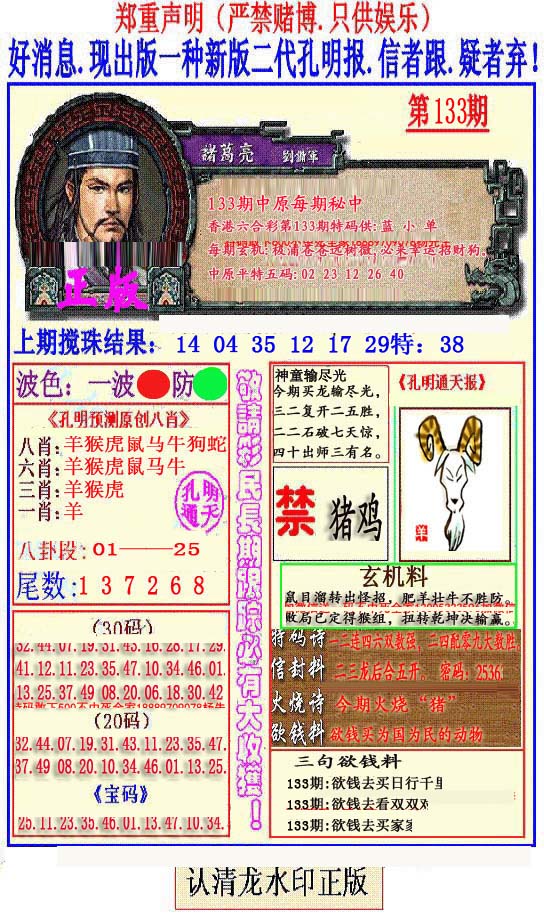 郑重声明（严禁赌博.只供娱乐）
好消息.现出版一种新版二代孔明报.信者跟.疑者弃!
第133期
諸葛亮
133期中原每期秘中
香港六合彩第133期特码供: 蓝 小 单
中原平特五码: 02 23 12 26 40
正版
上期搅珠结果: 14 04 35 12 17 29特: 38
波色: 一波 防
《孔明预测原创八肖》
八肖: 羊猴虎鼠马牛狗蛇
六肖: 羊猴虎鼠马牛
三肖: 羊猴虎
一肖: 羊
孔明通天
八卦段: 01——25
尾数: 1 3 7 2 6 8
(30码)
32.44.07.19.31.43.16.28.17.29.
41.12.11.23.35.47.10.34.46.01.
13.25.37.49.08.20.06.18.30.42
(20码)
32.44.07.19.31.43.11.23.35.47.
37.49 08.20.10.34.46 01.13.25.
《宝码》
25.11.23.35.46.01.13.47.10.34.
敬請彩民長期跟踪必有大收獲!
神童输尽光
今期买龙输尽光，
三二复开二五胜，
二二石破七天惊，
四十出师三有名。
《孔明通天报》
羊
禁 猪鸡
玄机料
鼠目溜转出怪招，肥羊壮牛不胜防。
败局已定得猴组，扭转乾坤决输赢。
特码诗 一二连四六双数强，三四配零九大数胜
信封料 二三龙后合五开。 密码: 2536.
火烧诗 今期火烧“猪”
欲钱料 欲钱买为国为民的动物
三句欲钱料
133期:欲钱去买日行千里
133期:欲钱去看双双
133期:欲钱去买家
认清龙水印正版